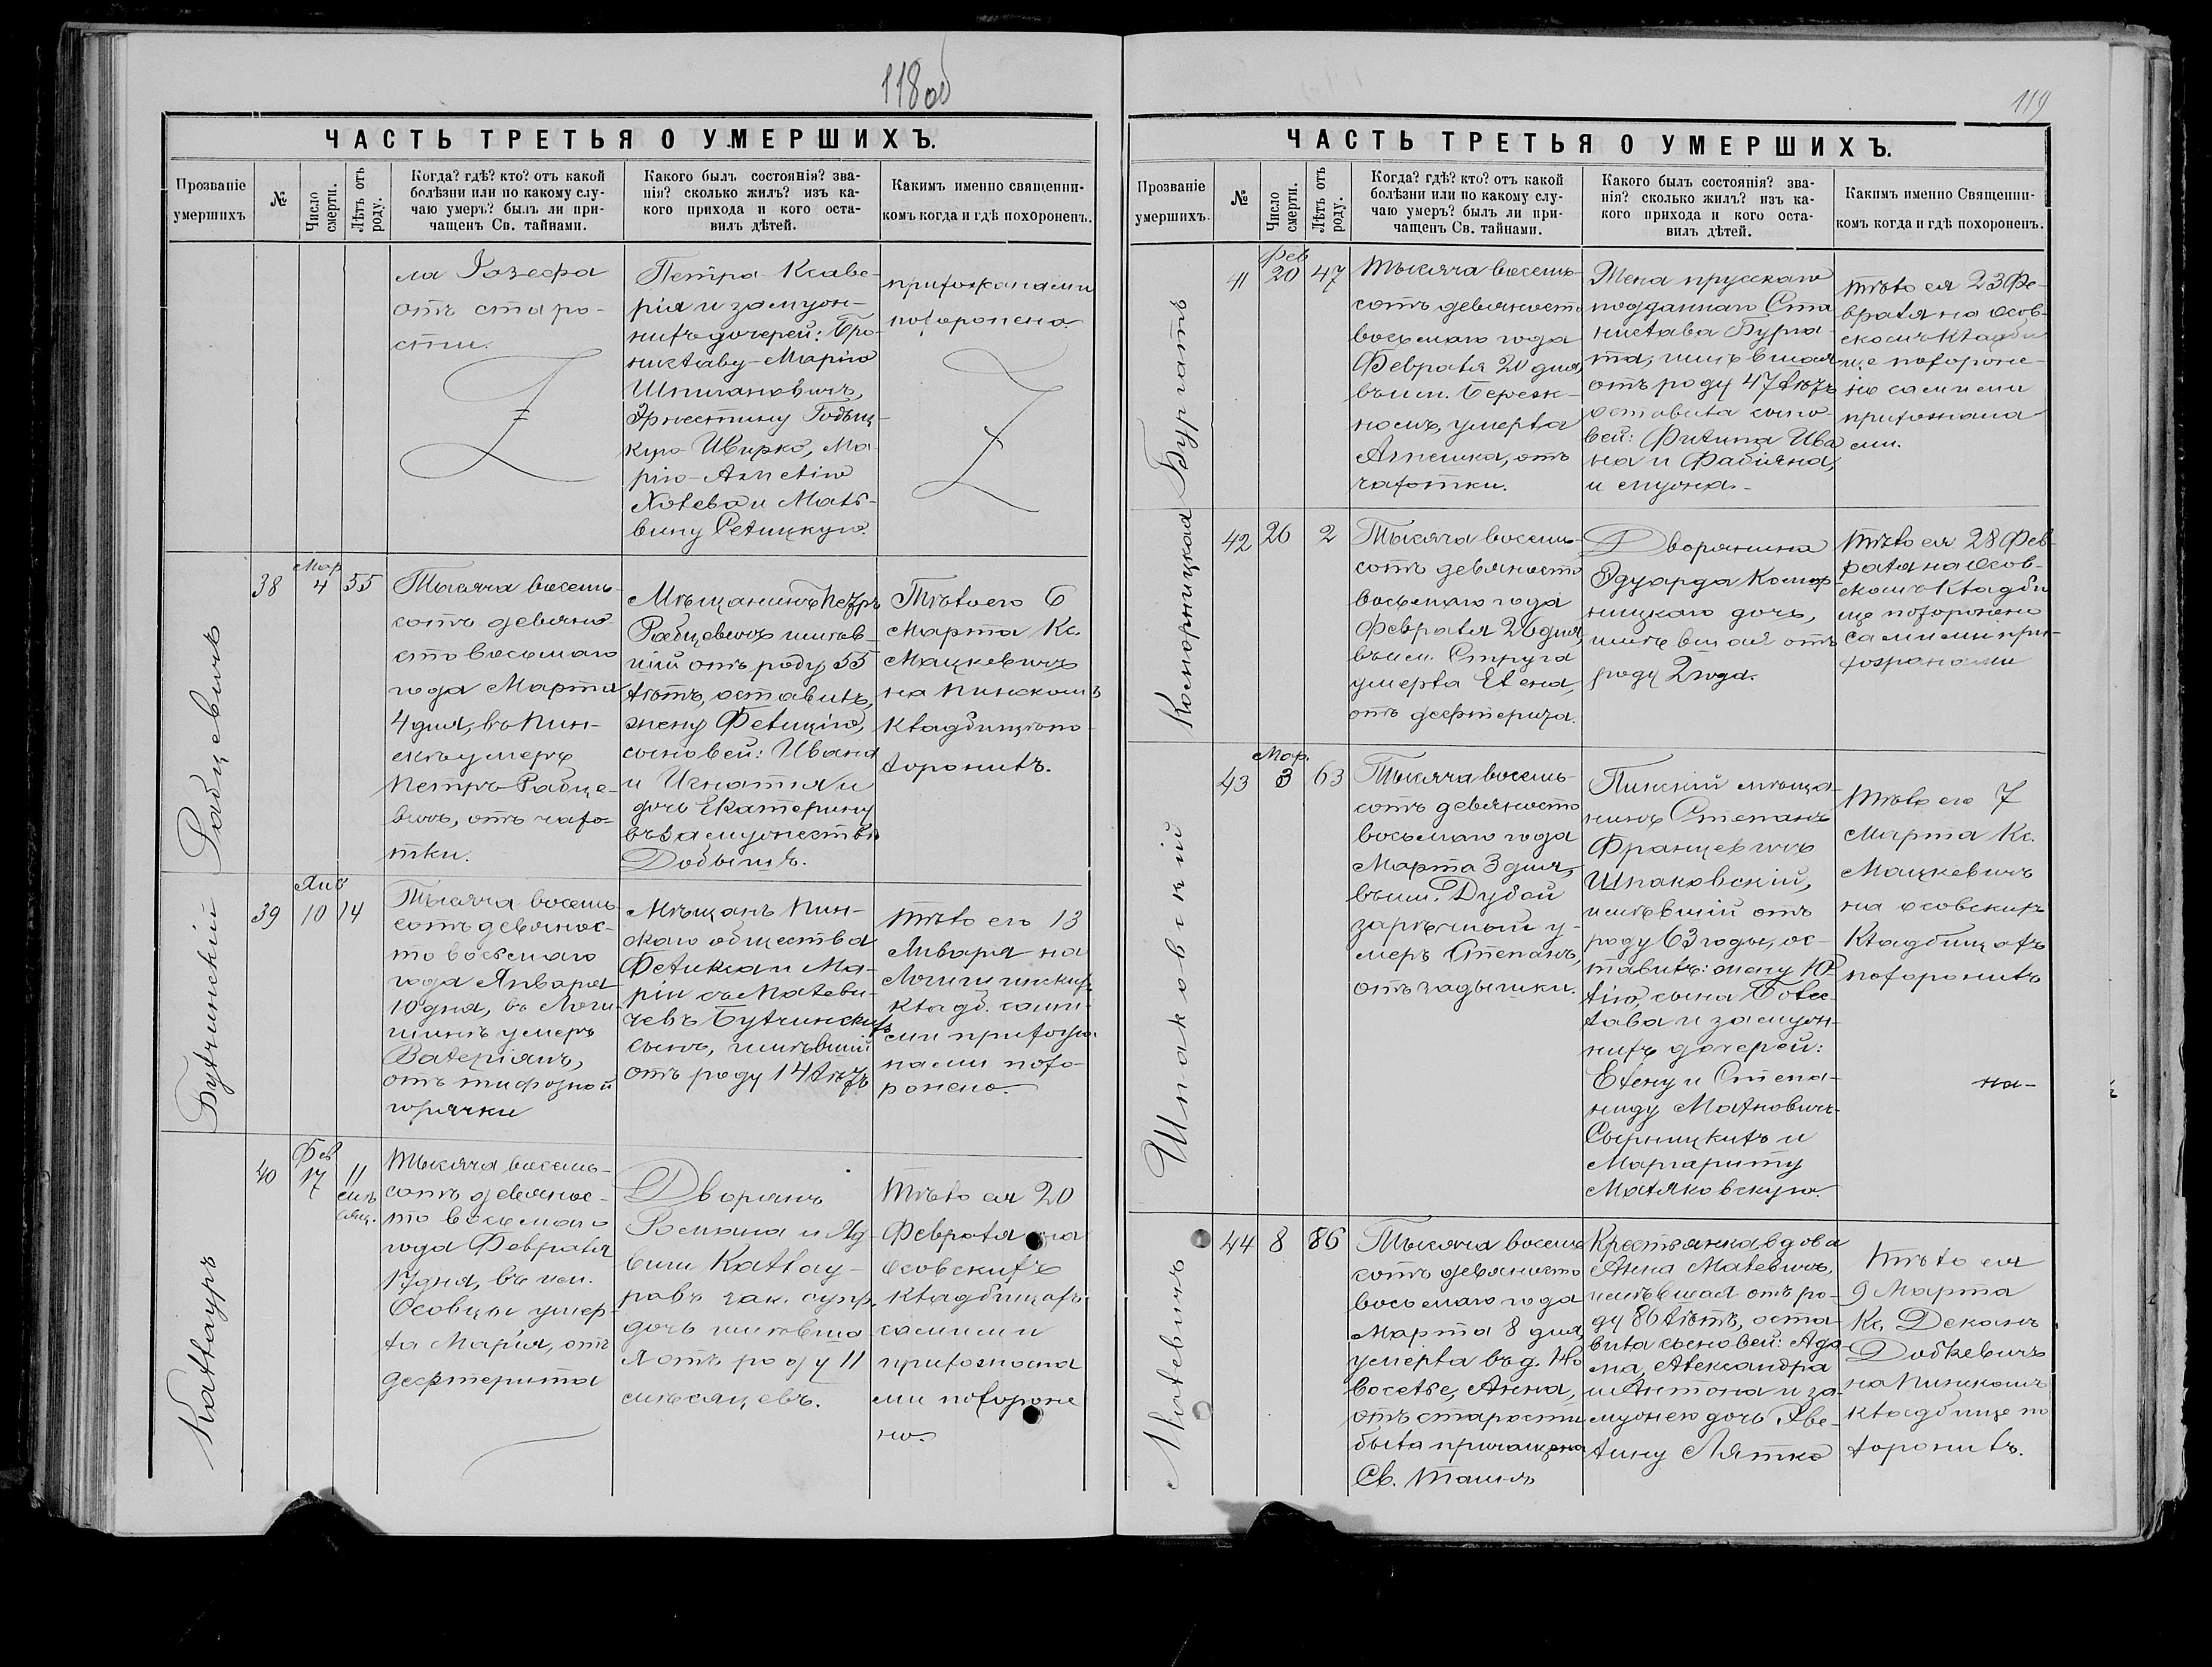 118 об
ЧАСТЬ ТРЕТЬЯ О УМЕРШИХЪ.
Прозваніе умершихъ
№
Число смерти.
Лѣтъ отъ роду.
Когда? гдѣ? кто? отъ какой
болѣзни или по какому слу-
чаю умеръ? былъ ли при-
чащенъ Св. тайнами.
Какого былъ состоянія? зва-
нія? сколько жилъ? изъ ка-
кого прихода и кого оста-
вилъ дѣтей.
Какимъ именно священни-
комъ когда и гдѣ похороненъ.
ла Іозефа
отъ старо-
сти.
Петра-Ксаве-
рія и замуж-
нихъ дочерей: Бро-
ниславу-Марію
Шпилановичъ,
Эрнестину
Ивирко, Ма-
рію-Амелію
Холева и Маль-
вину Селицкую.
прихожанами
похоронено.
Рабцевичъ
38
Мар
4
55
Тысяча восемь-
сотъ девяно
сто восьмаго
года Марта
4 дня, въ Пин-
скѣ умеръ
Петръ Рабце-
вичъ, отъ чахо-
тки.
Мѣщанинъ Петръ
Рабцевичъ имѣв-
шій отъ роду 55
лѣтъ, оставилъ,
жену Фелицію,
сыновей: Ивана
и Игнатія и
дочь Екатерину
въ замужествѣ
Тѣло его 6
Марта Кс.
Мацкевичъ
на Пинскомъ
кладбищѣ по-
хоронилъ.
Бутчинскій
39
Янв
10
14
Тысяча восемь
сотъ девянос-
то восьмаго
года Января
10 дня, въ Логи-
шинѣ умеръ
Валеріянъ,
отъ тифозной
горячки
Мѣщанъ Пин-
скаго общества
Феликса и Ма-
ріи съ Матеви-
чевъ Бутчинскихъ
сынъ, имѣвшій
отъ роду 14 лѣтъ.
Тѣло его 13
Января на
Логишинскихъ
кладб. сами-
ми прихожа
нами похо-
ронено.
Каллауръ
40
Фев
17
11
мѣ
сяц.
Тысяча восемь-
сотъ девянос-
то восьмаго
года Февраля
17 дня, въ им.
Осовцы умер-
ла Марія, отъ
дефтерита
Дворянъ
Романа и Яд-
виги Каллау-
ровъ зак. супр.
дочь имѣвша
я отъ роду 11
мѣсяцевъ.
Тѣло ея 20
Февраля на
осовскихъ
кладбищахъ
самими
прихожана
ми похороне
но.
119
ЧАСТЬ ТРЕТЬЯ О УМЕРШИХЪ.
Прозваніе умершихъ.
№
Число смерти.
Лѣтъ отъ роду.
Когда? гдѣ? кто? отъ какой
болѣзни или по какому слу-
чаю умеръ? былъ ли при-
чащенъ Св. тайнами.
Какого былъ состоянія? зва-
нія? сколько жилъ? изъ ка-
кого прихода и кого оста-
вилъ дѣтей.
Какимъ именно Священни-
комъ когда и гдѣ похороненъ.
Бургатъ
41
Фев
20
47
Тысяча восемь-
сотъ девяносто
восьмаго года
Февраля 20 дня,
въ им. Береж-
номъ, умерла
Агнешка, отъ
чахотки.
Жена прусскаго
подданнаго Ста
нислава Бурга-
та, имѣвшая
отъ роду 47 лѣтъ
оставила сыно-
вей: Филипа Ива
на и Фабіяна,
и мужа.-
Тѣло ея 23 Фе-
враля на Осов-
скомъ кладби
ще похороне-
но самими
прихожана
ми.
Косцорницкая
42
26
2
Тысяча восемь-
сотъ девяносто
восьмаго года
Февраля 26 дня,
въ им. Струга
умерла Елена,
отъ дефтерита.
Дворянина
Эдуарда
ницкаго дочь,
имѣвшая отъ
роду 2 года.
Тѣло ея 28 Фев-
раля на Осов-
скомъ кладби
ще похоронено
самими при-
хожанами
Шпаковскій
43
Мар.
3
63
Тысяча восемь-
сотъ девяносто
восьмаго года
Марта 3 дня,
въ им. Дубой
зарѣчный у-
меръ Степанъ,
отъ задышки.
Пинскій мѣща-
нинъ Степанъ
Францевичъ
Шпаковскій,
имѣвшій отъ
роду 63 годы, ос-
тавилъ: жену Ю-
лію, сына Болес-
лава и замуж-
нихъ дочерей:
Елену и Степа-
ниду Малковичъ
Сырницкихъ и
Маргариту
Маляковскую.
Тѣло его 7
Марта Кс.
Мацкевичъ
на осовскихъ
Кладбищахъ
похоронилъ
на-
Матевичъ
44
8
86
Тысяча восемь
сотъ девяносто
восьмаго года
Марта 8 дня,
умерла въ д. Но
воселье, Анна,
отъ старости
была причащена
Св. Таинъ
Крестьянка вдова
Анна Матевичъ,
имѣвшая отъ ро-
ду 86 лѣтъ, оста-
вила сыновей: Ада
ма, Александра
и Антона и за-
мужнею дочь Эве-
лину Лятко
Тѣло ея
9 Марта
Кс. Деканъ
Добкевичъ
на Пинскомъ
кладбище по
хоронилъ.